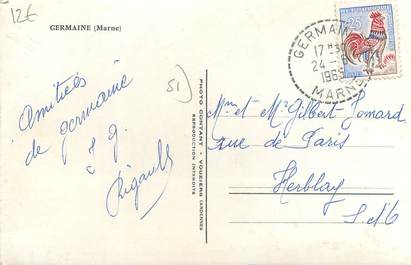 12€
GERMAINE (Marne)
51)
Amitiés
de germaine
Rigault
PHOTO CONTANT - VOUZIERS (ARDENNES)
REPRODUCTION INTERDITE
GERMAINE
17H30
24 -
196
MARNE
25
Mme et Mr Gilbert Jomard
rue de Paris
Herblay
S. et O